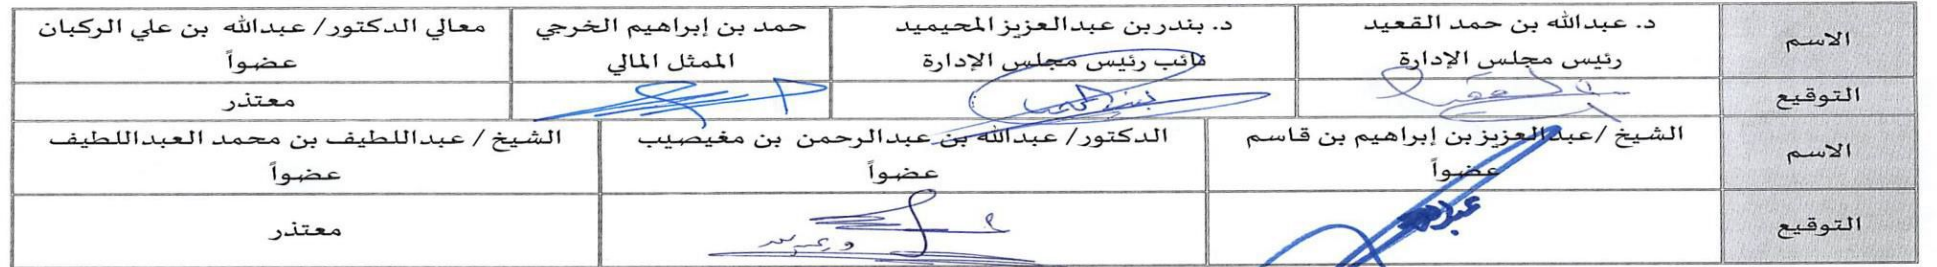 الاسم
د. عبدالله بن حمد القعيد
رئيس مجلس الإدارة
د. بندر بن عبدالعزيز المحيميد
نائب رئيس مجلس الإدارة
حمد بن إبراهيم الخرجي
الممثل المالي
معالي الدكتور/ عبدالله بن علي الركبان
عضواً
التوقيع
معتذر
الاسم
الشيخ /عبدالعزيز بن إبراهيم بن قاسم
عضواً
الدكتور/ عبدالله بن عبدالرحمن بن مغيصيب
عضواً
الشيخ / عبداللطيف بن محمد العبداللطيف
عضواً
التوقيع
معتذر